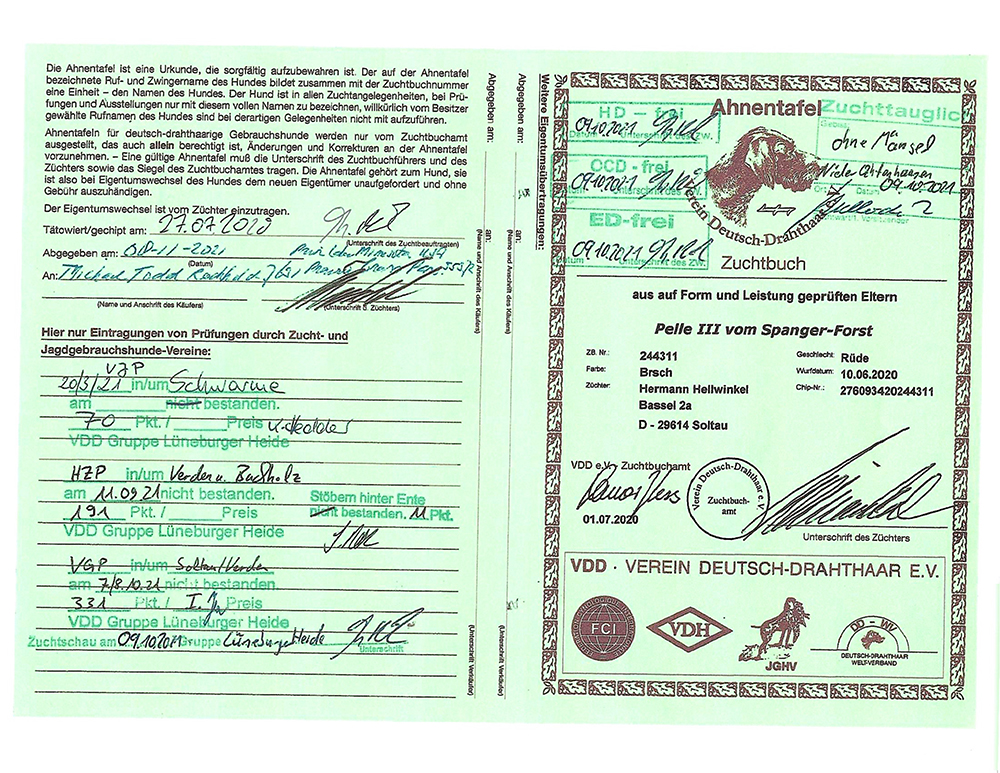 Die Ahnentafel ist eine Urkunde, die sorgfältig aufzubewahren ist. Der auf der Ahnentafel
bezeichnete Ruf- und Zwingername des Hundes bildet zusammen mit der Zuchtbuchnummer
eine Einheit – den Namen des Hundes. Der Hund ist in allen Zuchtangelegenheiten, bei Prü-
fungen und Ausstellungen nur mit diesem vollen Namen zu bezeichnen, willkürlich vom Besitzer
gewählte Rufnamen des Hundes sind bei derartigen Gelegenheiten nicht mit aufzuführen.
Ahnentafeln für deutsch-drahthaarige Gebrauchshunde werden nur vom Zuchtbuchamt
ausgestellt, das auch allein berechtigt ist, Änderungen und Korrekturen an der Ahnentafel
vorzunehmen. – Eine gültige Ahnentafel muß die Unterschrift des Zuchtbuchführers und des
Züchters sowie das Siegel des Zuchtbuchamtes tragen. Die Ahnentafel gehört zum Hund, sie
ist also bei Eigentumswechsel des Hundes dem neuen Eigentümer unaufgefordert und ohne
Gebühr auszuhändigen.
Der Eigentumswechsel ist vom Züchter einzutragen.
Tätowiert/gechipt am: 27.07.2020
(Unterschrift des Zuchtbeauftragten)
Abgegeben am: 08-11-2021
(Datum)
An: Michael Todd
(Name und Anschrift des Käufers)
(Unterschrift d. Züchters)
Hier nur Eintragungen von Prüfungen durch Zucht- und
Jagdgebrauchshunde-Vereine:
VJP
20/3/21 in/um Schwarme
am nicht bestanden.
70 Pkt. / Preis
VDD Gruppe Lüneburger Heide
HZP in/um Verden u. Buchholz
am 11.09.21 nicht bestanden.
191 Pkt. / Preis
VDD Gruppe Lüneburger Heide
Stöbern hinter Ente
nicht bestanden. 11 Pkt.
VGP in/um Soltau/Verden
am 7/8.10.21 nicht bestanden.
331 Pkt. / I. Preis
VDD Gruppe Lüneburger Heide
Zuchtschau am 09.10.2021 Gruppe Lüneburger Heide
Unterschrift
Abgegeben am:
an:
(Name und Anschrift des Käufers)
(Unterschrift Verkäufer)
Abgegeben am:
an:
(Name und Anschrift des Käufers)
(Unterschrift Verkäufer)
Weitere Eigentumsübertragungen:
HD – frei
09.10.2021
Datum Unterschrift des ZW.
OCD - frei
09.10.2021
ED-frei
09.10.2021
Datum Unterschrift des ZW.
Ahnentafel
Zuchttauglich
ohne Mängel
09.10.2021
Verein Deutsch-Drahthaar
Zuchtbuch
aus auf Form und Leistung geprüften Eltern
Pelle III vom Spanger-Forst
ZB. Nr.: 244311 Geschlecht: Rüde
Farbe: Brsch Wurfdatum: 10.06.2020
Züchter: Hermann Hellwinkel Chip-Nr.: 276093420244311
Bassel 2a
D - 29614 Soltau
VDD e.V.- Zuchtbuchamt
01.07.2020
Verein Deutsch-Drahthaar e.V.
Zuchtbuch-
amt
Unterschrift des Züchters
VDD · VEREIN DEUTSCH-DRAHTHAAR E.V.
FCI
VDH
JGHV
DD - WV
DEUTSCH-DRAHTHAAR
WELT-VERBAND